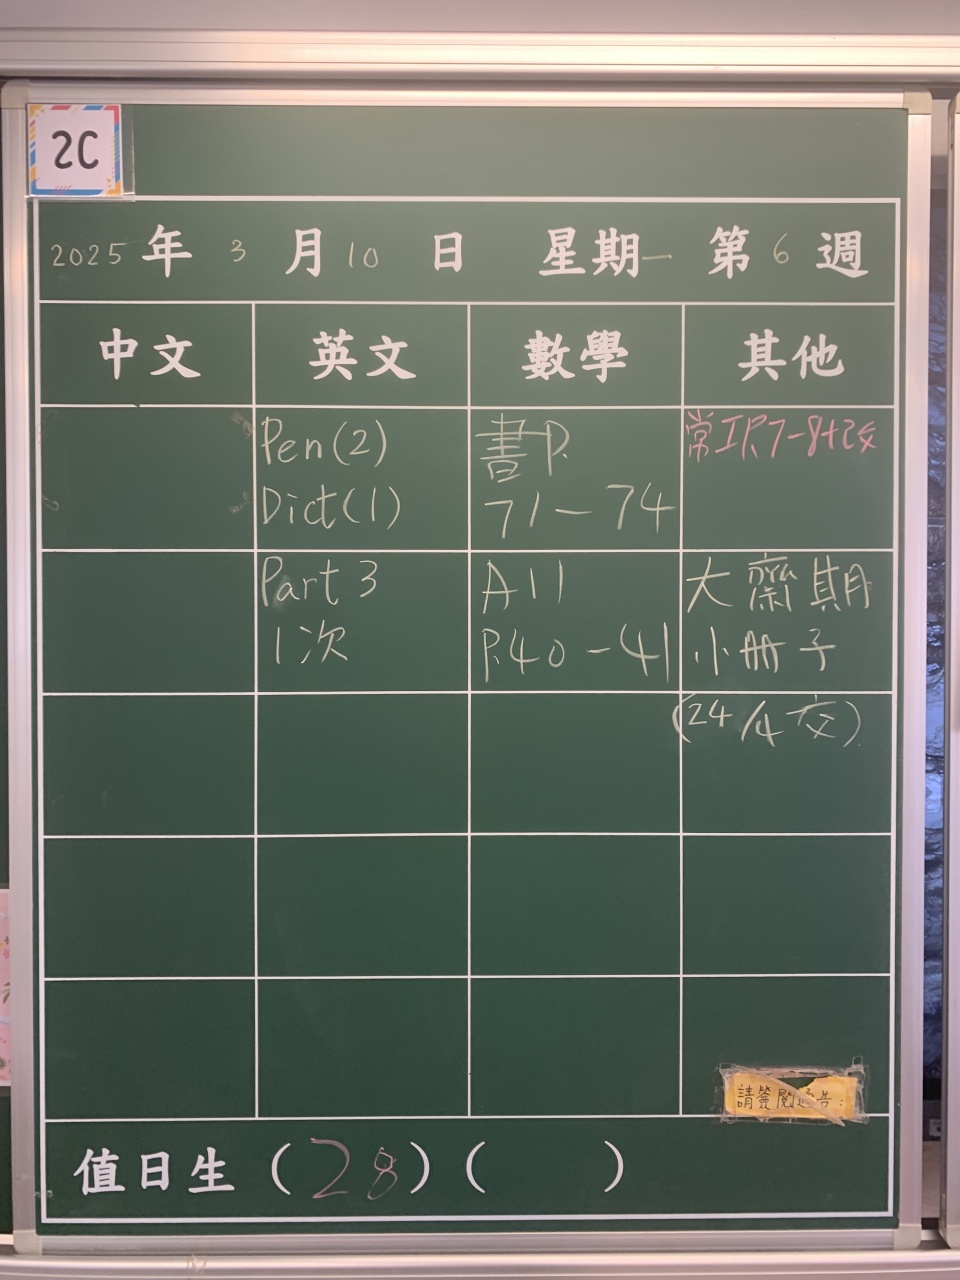 2C
2025年 3月10日 星期一 第6週
中文 英文 數學 其他
Pen(2)
Dict(1)
書P.
71-74
常工P.7-8+改
Part 3
1次
A11
P.40-41
大齋期
小冊子
(24/4交)
請簽覆通告:
值日生(28)( )